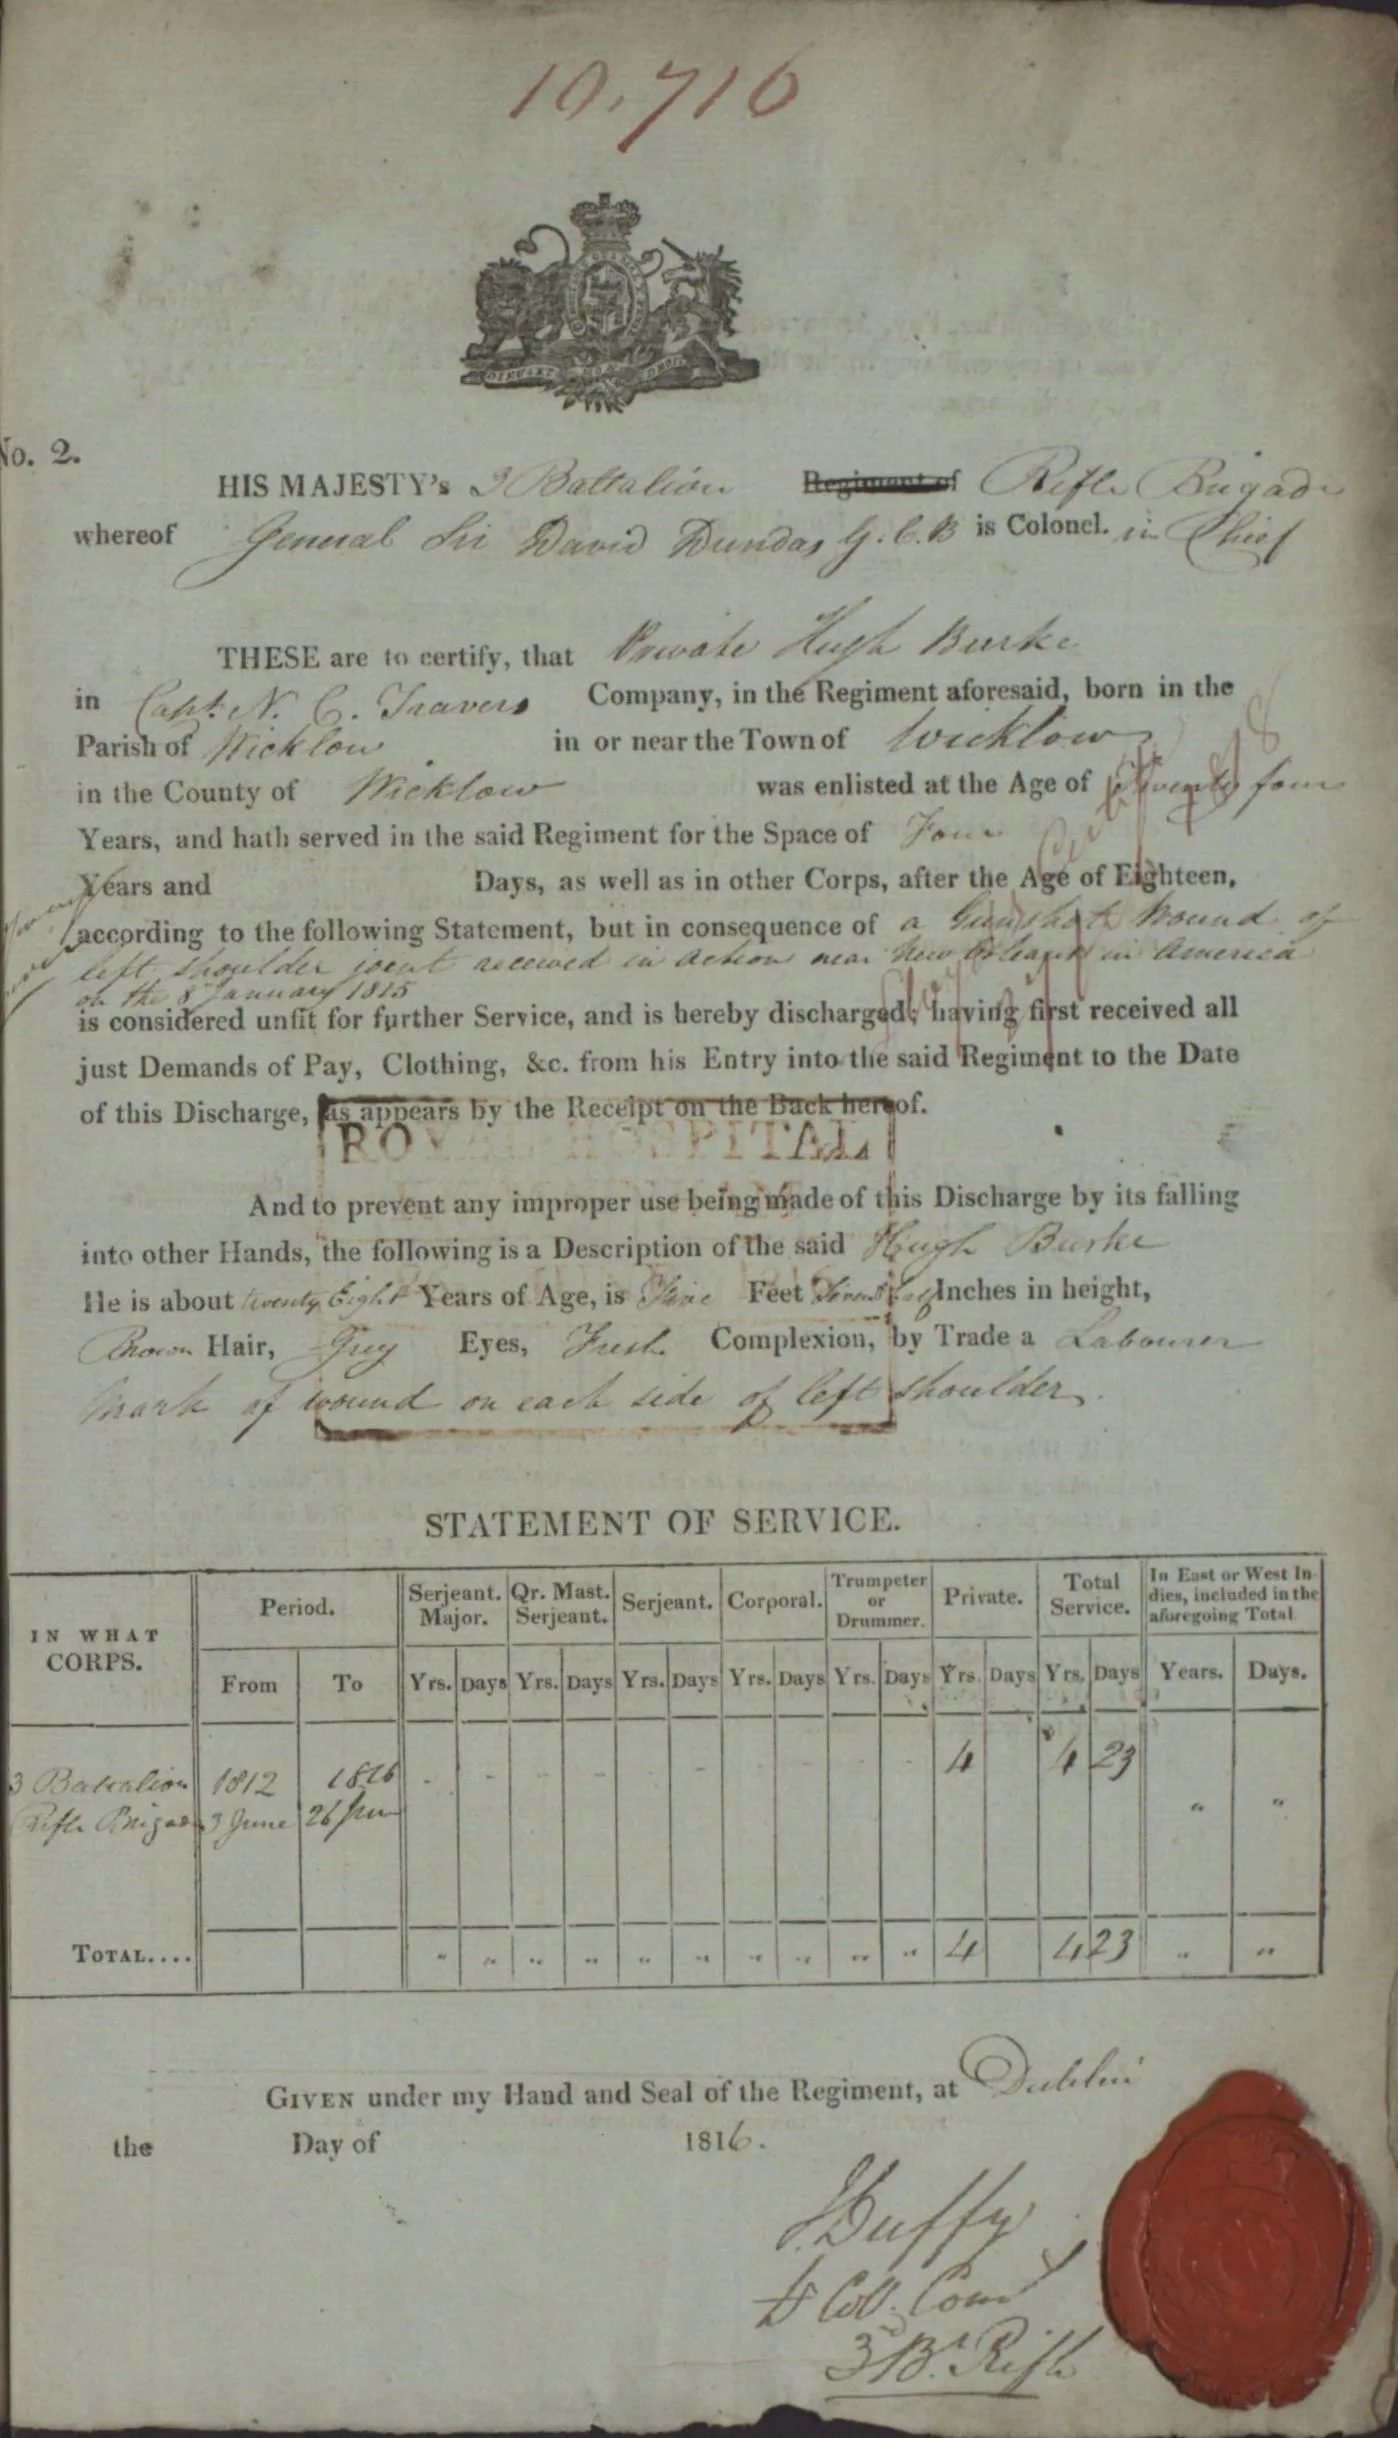 10,716
DIEU ET MON DROIT
No. 2.
HIS MAJESTY's 3 Battalion Regiment of Rifle Brigade
whereof General Sir David Dundas G.C.B is Colonel. in Chief
THESE are to certify, that Private Hugh Burke
in Capt. N. C. Travers Company, in the Regiment aforesaid, born in the
Parish of Wicklow in or near the Town of Wicklow
in the County of Wicklow was enlisted at the Age of Twenty four
Years, and hath served in the said Regiment for the Space of Four
Years and Days, as well as in other Corps, after the Age of Eighteen,
according to the following Statement, but in consequence of a Gun shot Wound of
left shoulder joint received in Action near New Orleans in America
on the 8 January 1815
is considered unfit for further Service, and is hereby discharged; having first received all
just Demands of Pay, Clothing, &c. from his Entry into the said Regiment to the Date
of this Discharge, as appears by the Receipt on the Back hereof.
ROYAL HOSPITAL
And to prevent any improper use being made of this Discharge by its falling
into other Hands, the following is a Description of the said Hugh Burke
He is about twenty Eight Years of Age, is Five Feet Inches in height,
Brown Hair, Grey Eyes, Fresh Complexion, by Trade a Labourer
Mark of wound on each side of left shoulder.
STATEMENT OF SERVICE.
IN WHAT CORPS. Period. Serjeant. Major. Qr. Mast. Serjeant. Serjeant. Corporal. Trumpeter or Drummer. Private. Total Service. In East or West Indies, included in the aforegoing Total
From To Yrs. Days Yrs. Days Yrs. Days Yrs. Days Yrs. Days Yrs. Days Yrs. Days Years. Days.
3 Battalion 1812 1816 - - - - - - - - - - 4 4 23
Rifle Brigade 3 June 26 June " "
TOTAL.... " " " " " " " " " " 4 4 23 " "
GIVEN under my Hand and Seal of the Regiment, at Dublin
the Day of 1816.
J Duffy
Lt Coll. Com
3 Bn. Rifle